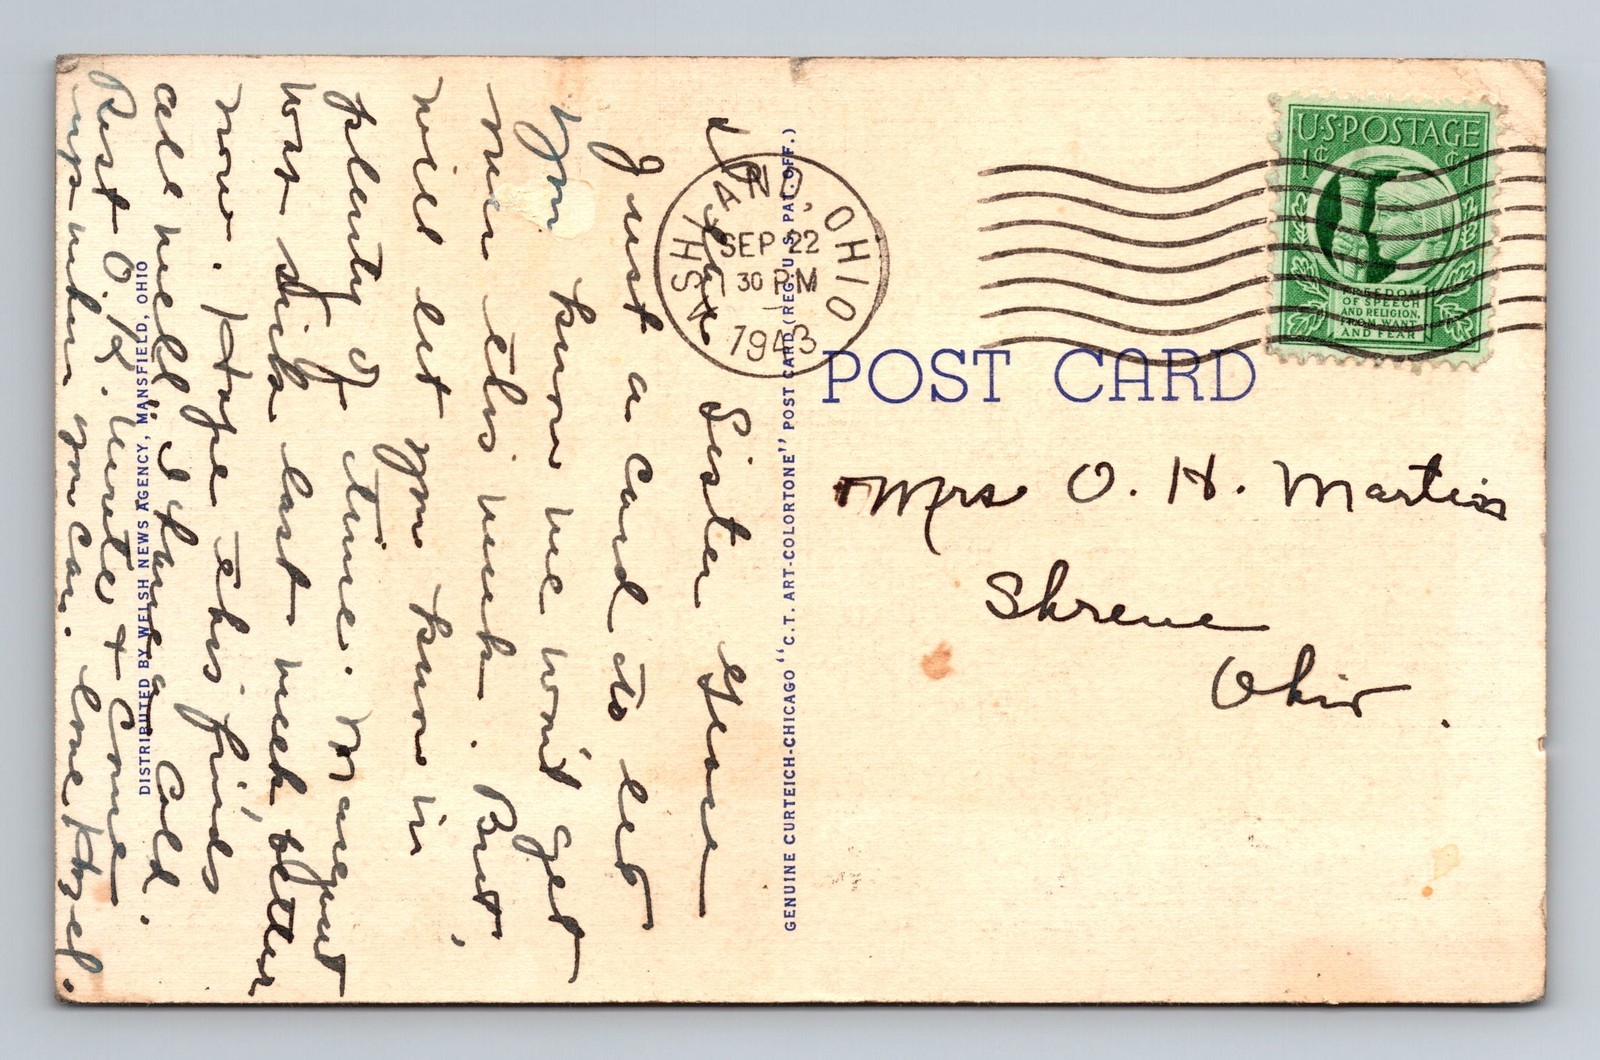 Dearest Sister Gene
Just a card to let
you know we won't get
over this week. But,
will let you know in
plenty of time. Margaret
was sick last week better
now. Hope this finds
all well. I have a cold.
Rest O.K. Write & Come
up when you can. Love Hazel.
DISTRIBUTED BY WELSH NEWS AGENCY, MANSFIELD, OHIO
GENUINE CURTEICH-CHICAGO "C.T. ART-COLORTONE" POST CARD (REG. U.S. PAT. OFF.)
ASHLAND, OHIO
SEP 22
30 PM
1943
U·S·POSTAGE
1¢ ¢1
FREEDOM
OF SPEECH
AND RELIGION,
FROM WANT
AND FEAR
POST CARD
Mrs O. H. Martin
Shreve
Ohio.